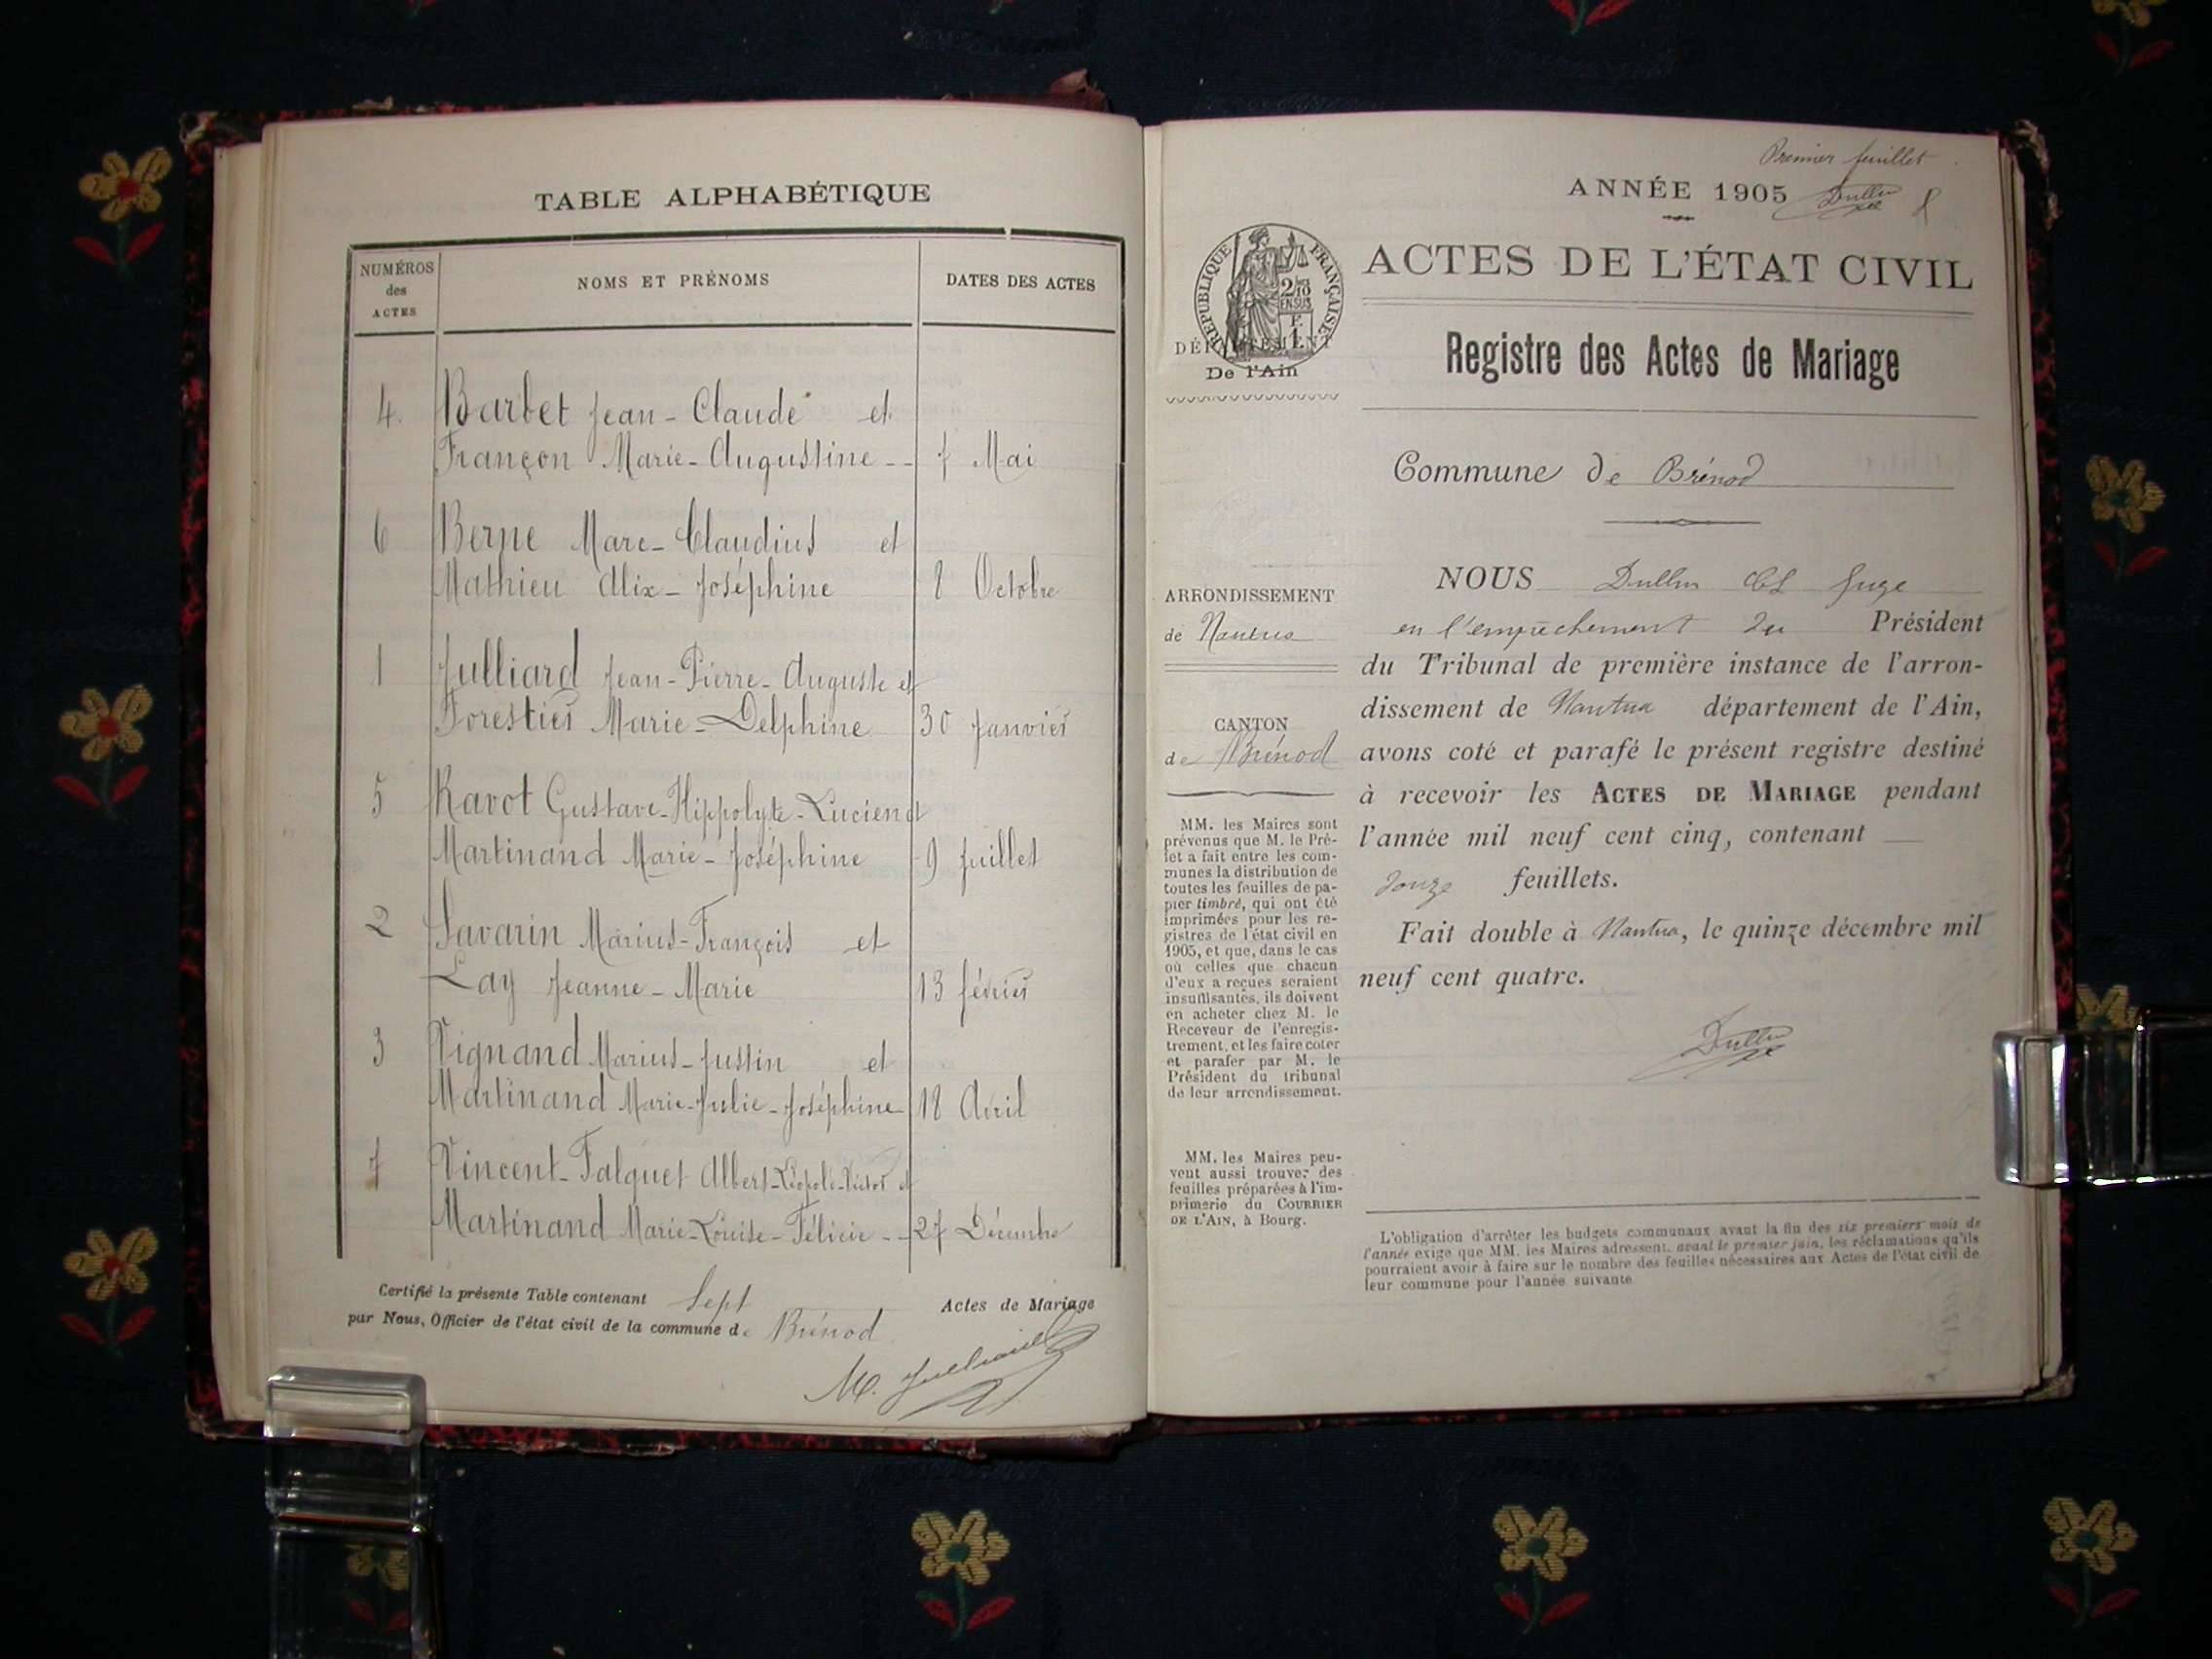 TABLE ALPHABÉTIQUE
NUMÉROS
des
ACTES
NOMS ET PRÉNOMS
DATES DES ACTES
4. Barbet Jean-Claude et
Françon Marie-Augustine -- 7 Mai
6 Berne Marc-Claudius et
Mathieu Alix-Joséphine 8 Octobre
1 Julliard Jean-Pierre-Auguste et
Forestier Marie-Delphine 30 Janvier
5 Ravot Gustave-Hippolyte-Lucien et
Martinand Marie-Joséphine 9 Juillet
2 Savarin Marius-François et
Lay Jeanne-Marie 13 février
3 Vignand Marius-Justin et
Martinand Marie-Julie-Joséphine 18 Avril
7 Vincent-Falquet Albert-Léopold-Victor et
Martinand Marie-Louise-Félicie -- 27 Décembre
Certifié la présente Table contenant Sept Actes de Mariage
par Nous, Officier de l'état civil de la commune de Brénod
M. Julliard
Premier feuillet
ANNÉE 1905 Dullin
RÉPUBLIQUE FRANÇAISE
2/10
EN SUS
F.
1
DÉPARTEMENT
De l'Ain
ACTES DE L'ÉTAT CIVIL
Registre des Actes de Mariage
Commune de Brénod
ARRONDISSEMENT
de Nantua
CANTON
de Brénod
MM. les Maires sont
prévenus que M. le Pré-
fet a fait entre les com-
munes la distribution de
toutes les feuilles de pa-
pier timbré, qui ont été
imprimées pour les re-
gistres de l'état civil en
1905, et que, dans le cas
où celles que chacun
d'eux a reçues seraient
insuffisantes, ils doivent
en acheter chez M. le
Receveur de l'enregis-
trement, et les faire coter
et parafer par M. le
Président du tribunal
de leur arrondissement.
MM. les Maires peu-
vent aussi trouver des
feuilles préparées à l'im-
primerie du COURRIER
DE L'AIN, à Bourg.
NOUS Dullin Juge
en l'empêchement du Président
du Tribunal de première instance de l'arron-
dissement de Nantua département de l'Ain,
avons coté et parafé le présent registre destiné
à recevoir les ACTES DE MARIAGE pendant
l'année mil neuf cent cinq, contenant
douze feuillets.
Fait double à Nantua, le quinze décembre mil
neuf cent quatre.
Dullin
L'obligation d'arrêter les budgets communaux avant la fin des six premiers mois de
l'année exige que MM. les Maires adressent, avant le premier juin, les réclamations qu'ils
pourraient avoir à faire sur le nombre des feuilles nécessaires aux Actes de l'état civil de
leur commune pour l'année suivante